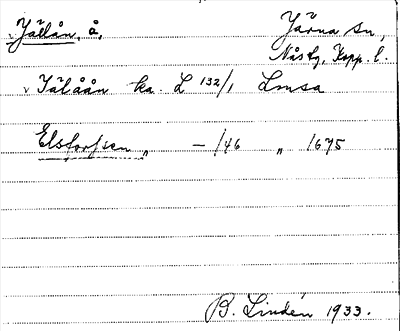 Jällån, å,
Järna sn,
Nås tg, Kopp. l.
Jälåån ka. L 132/1 Lmsa
Elstorpsen „ – /46 „ 1675
B. Lindén 1933.